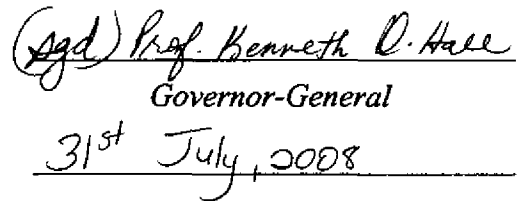 (sgd) Prof. Kenneth O. Hall
Governor-General
31st July, 2008